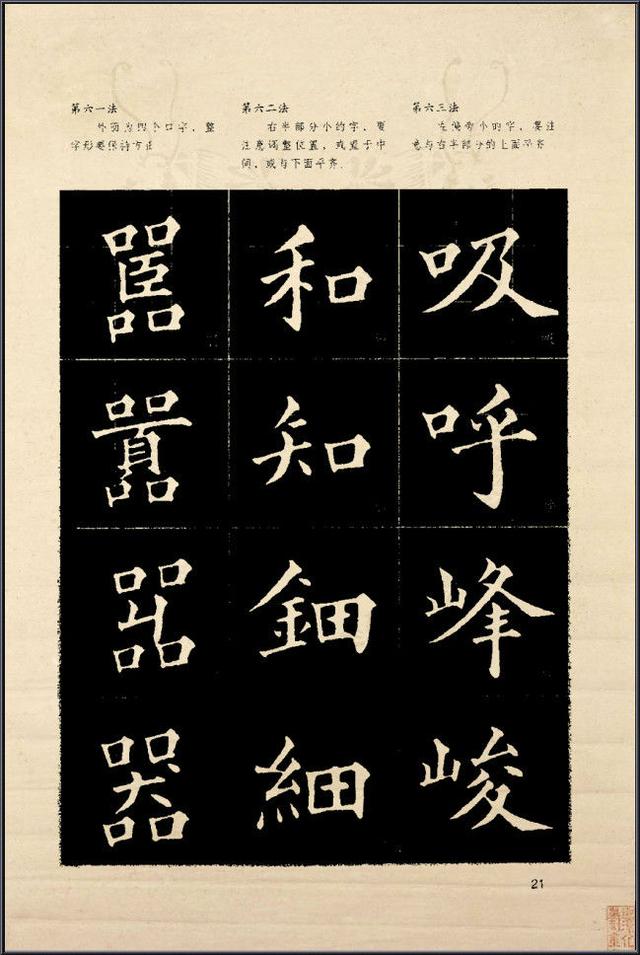 第六一法
外面为四个口字，整
字形要保持方正
第六二法
右半部分小的字，要
注意调整位置，或置于中
间，或与下面平齐.
第六三法
左偏旁小的字，要注
意与右半部分的上面平齐
嚚 和 吸
囂 知 呼
嘂 鈿 峰
器 細 峻
21